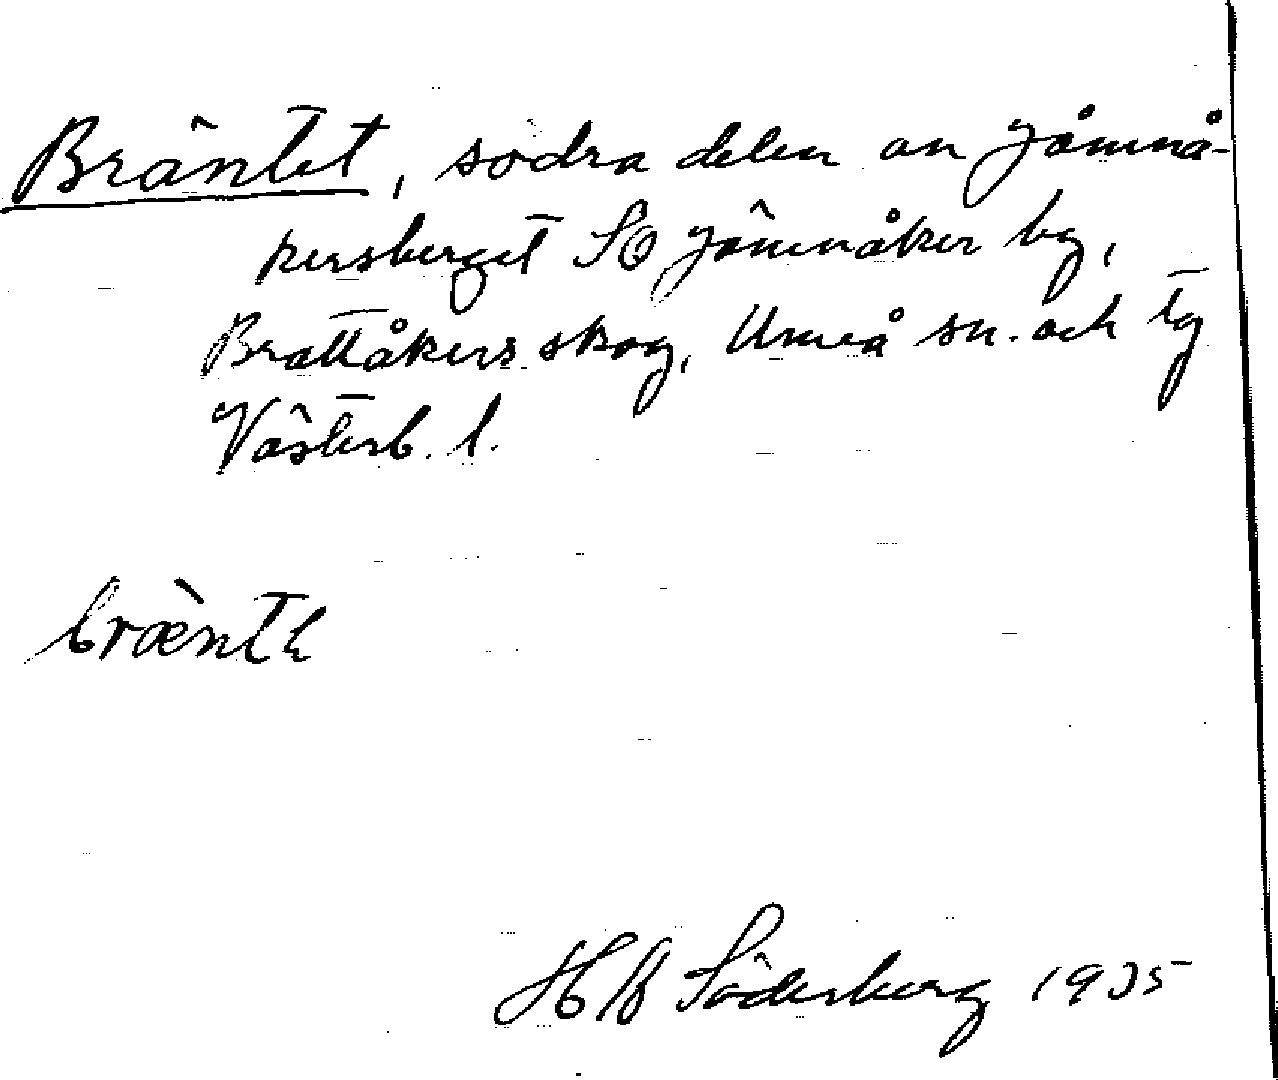 Bräntet, södra delen av Jämnå-
kersberget SO Jämnåker bg,
Brattåkers skog, Umeå sn. och tg
Västerb. l.
brænte
H B Söderberg 1935